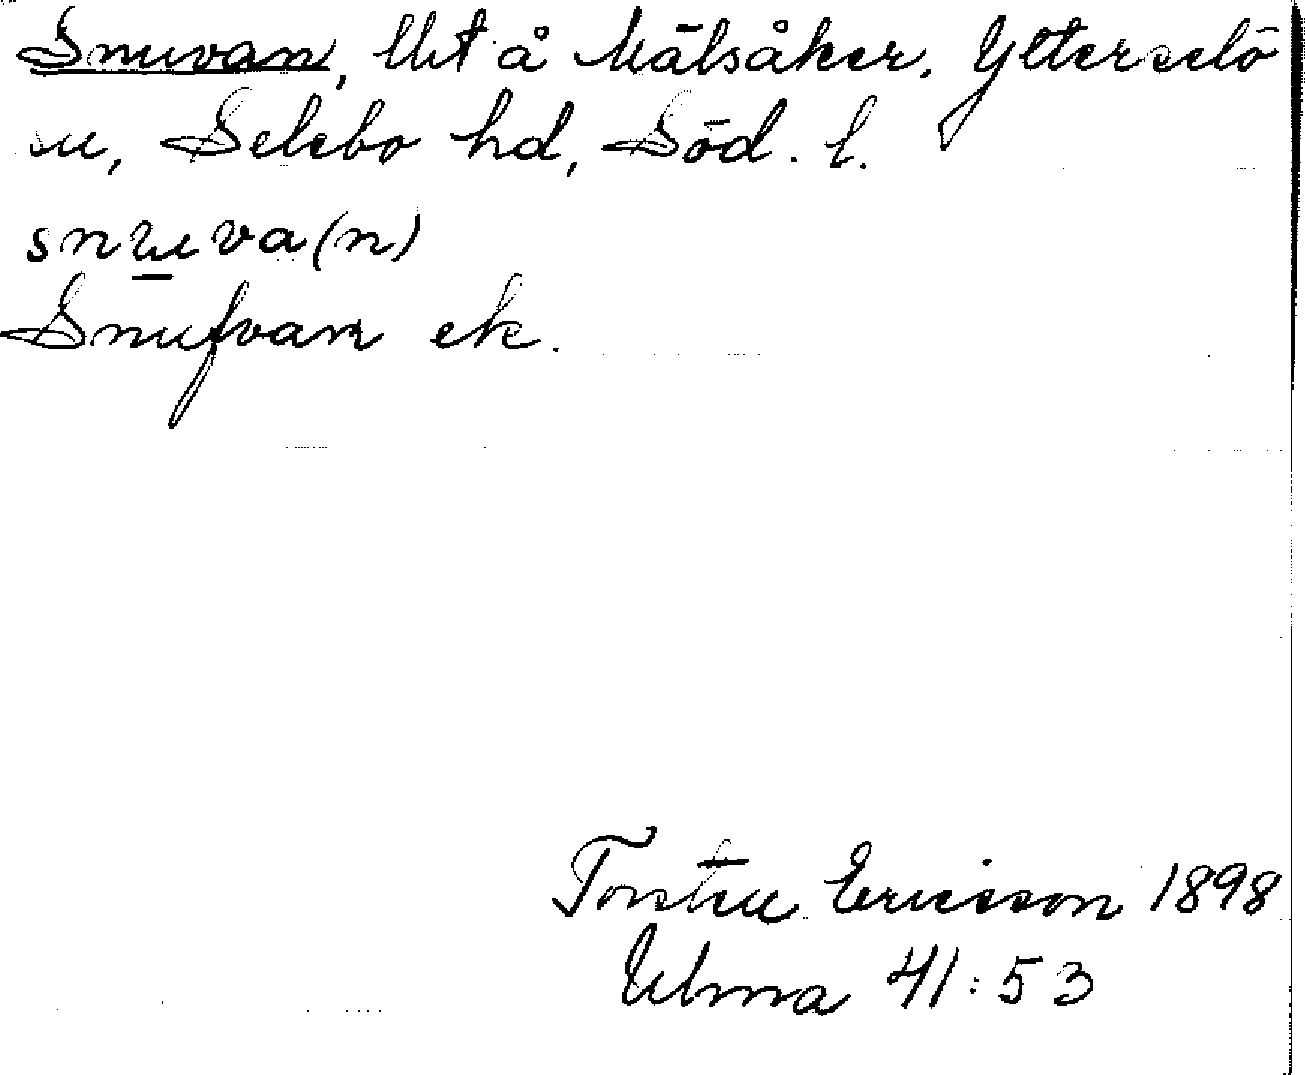 Snuvan, Urt å Mälsåker, Ytterselö
sn, Selebo hd, Söd. l.
snuva(n)
Snufvan ek.
Torsten Ericsson 1898
Ulma 41:53